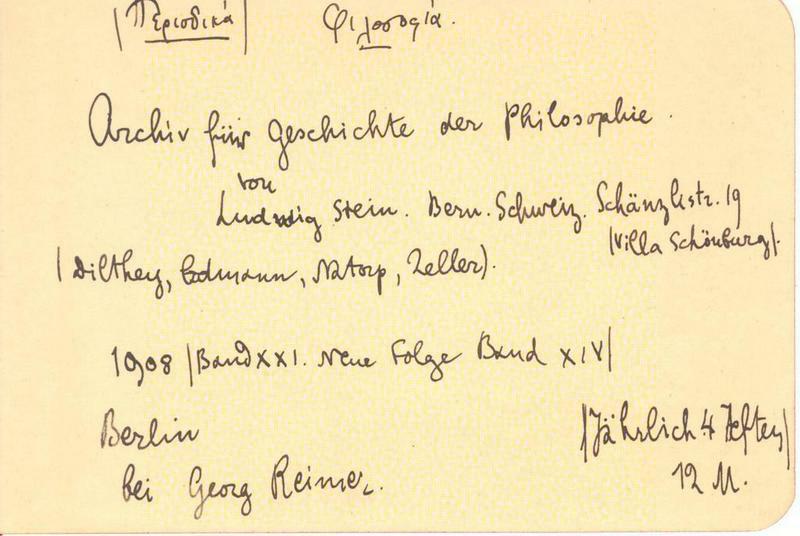 |Περιοδικά| Φιλοσοφία.
Archiv für Geschichte der Philosophie.
von
Ludwig Stein. Bern. Schweiz. Schänzlistr. 19
|Villa Schönburg|.
(Dilthey, Erdmann, Natorp, Zeller).
1908 |Band XXI. Neue Folge Band XIV|
Berlin
|Jährlich 4 Heften|
bei Georg Reimer.
12 M.